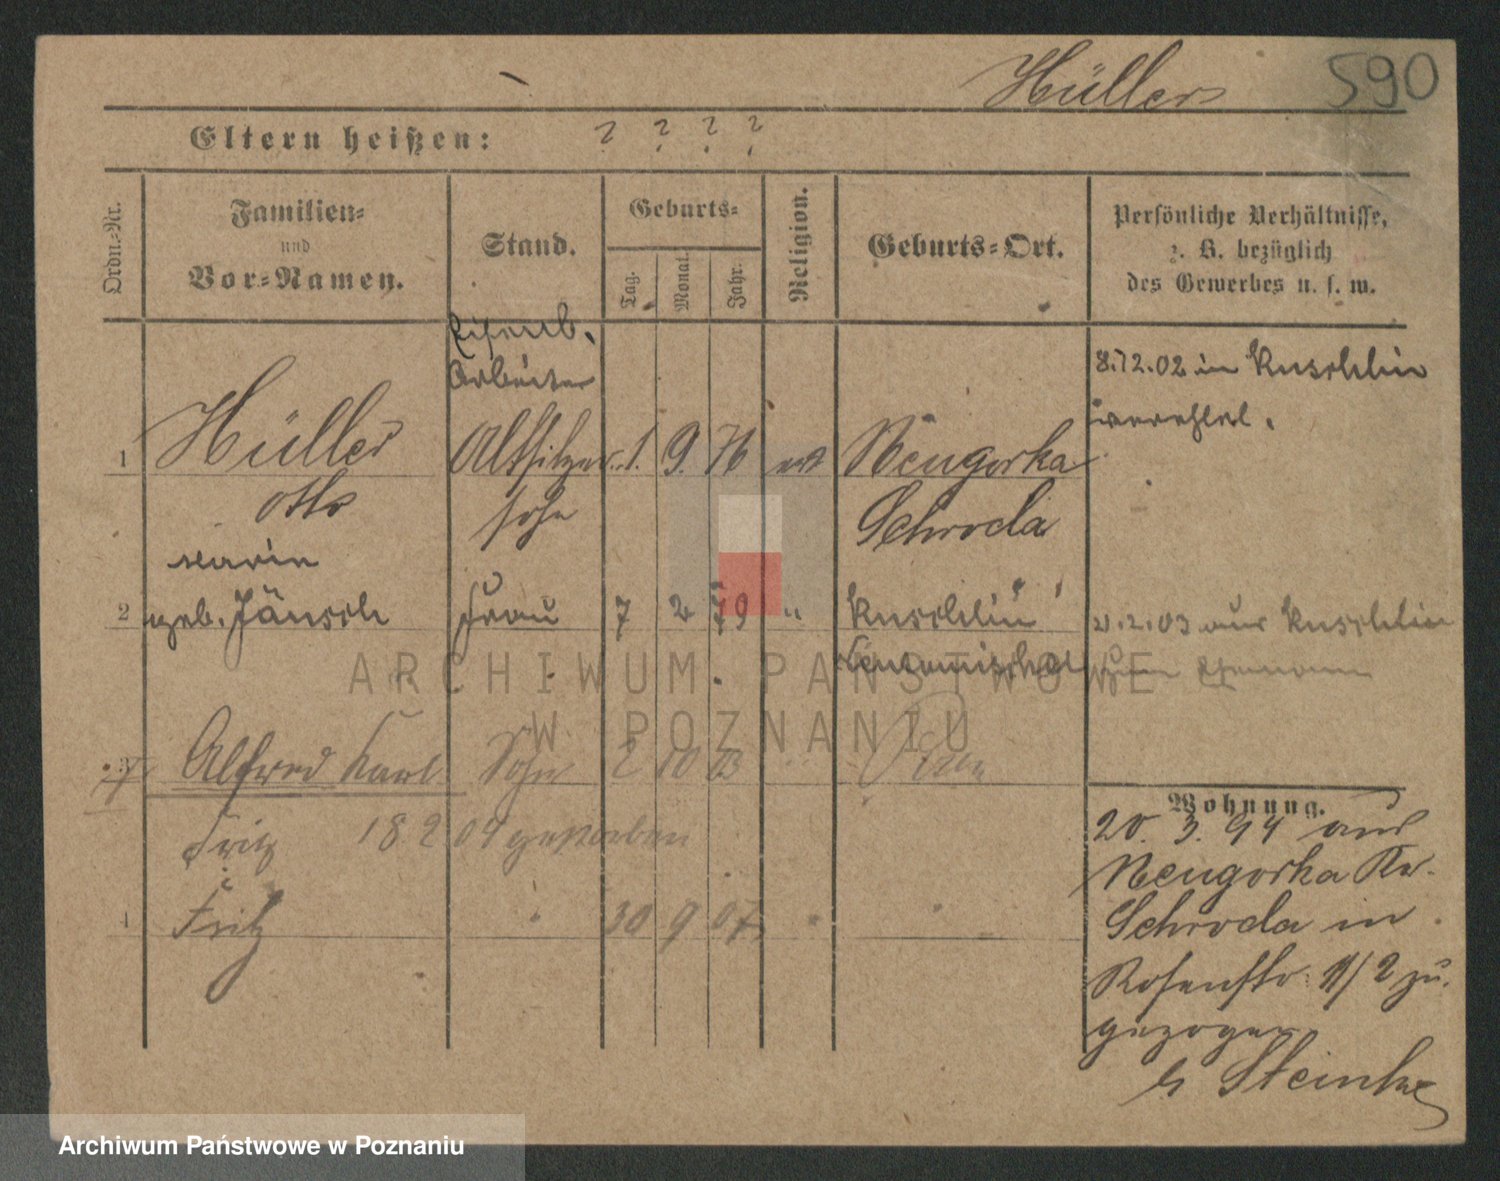 Hüller 590
Eltern heißen: ? ? ? ?
Ordn.-Nr.
Familien-
und
Vor-Namen.
Stand.
Geburts-
Tag.
Monat.
Jahr.
Religion.
Geburts-Ort.
Persönliche Verhältnisse,
z. B. bezüglich
des Gewerbes u. s. w.
Eisenb.
Arbeiter
8.12.02 in Kuschlin
verehel.
1 Hüller Altsitzer 1. 9. 76 ev Neugorka
Otto sohn Schroda
Marie
2 geb. Jänsch Frau 7 2 79 " Kuschlin
2.2.03 aus Kuschlin
Neutomischel
zum Ehemann
ARCHIWUM PAŃSTWOWE
W POZNANIU
3 Alfred Karl Sohn 2 10 03 " Posen
Fritz 18 2 04 gestorben
4 Fritz " 30 9 07 " "
Wohnung.
20. 3. 94 aus
Neugorka Kr.
Schroda in
Rosenstr. 11/2 zu
gezogen
b Steinke
Archiwum Państwowe w Poznaniu